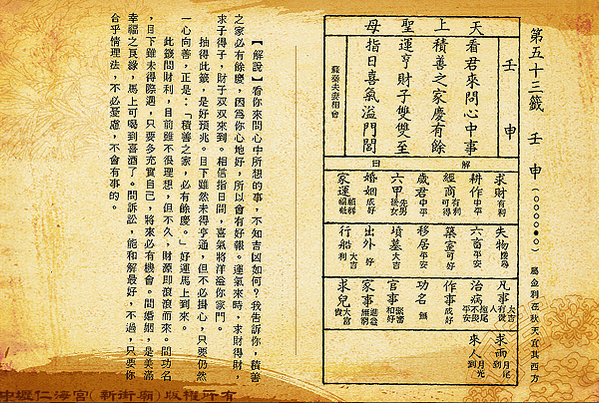 第五十三籤　壬　申（○○○○●○）　屬金利在秋天宜其西方
壬　申
天上聖母
看君來問心中事
積善之家慶有餘
運亨財子雙雙至
指日喜氣溢門閭
蘇秦夫妻相會
解　曰
求財　有利
耕作　中平
經商　有利可得
歲君　中平
六甲　先男後女
婚姻　成好
家運
失物
六畜　平安
築室　可好
移居　平安
墳墓　大吉
出外　好
行船　大吉利
凡事　大吉
治病
作事　成好
功名　無
官事
家事
求兒　大富貴
求雨　月尾到
來人　月光到
【解說】看你來問心中所想的事，不知吉凶如何？我告訴你，積善
之家必有餘慶，因為你心地好，所以會有好報。運氣來時，求財得財，
求子得子，財子双双來到。相信指日間，喜氣將洋溢你家門。
抽得此籤，是好預兆。目下雖然未得亨通，但不必掛心，只要仍然
一心向善，正是：「積善之家，必有餘慶。」好運馬上到來。
此籤問財利，目前雖不很理想，但不久，財源即滾滾而來。問功名
，目下雖未得際遇，只要多充實自己，將來必有機會。問婚姻，是美滿
幸福之良緣，馬上可喝到喜酒了。問訴訟，能和解最好，不過，只要你
合乎情理法，不必憂慮，不會有事的。
中壢仁海宮（新街廟）版權所有